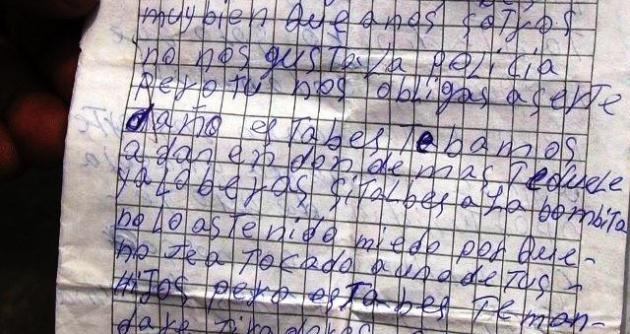 muy bien que anosotros
no nos gusta la policia
pero tu nos obligas aserte
daño esta bes le bamos
a dar en donde mas te duele
ya lo beras si talbes a la bombita
no lo as tenido miedo por que-
no te a tocado a uno de tus-
hijos pero esta bes te man-
dare tiradores